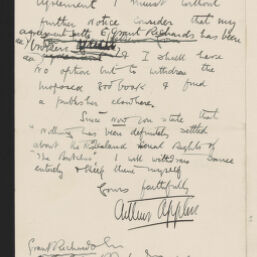 Agreement I must without
further notice consider that my
agreement with Grant Richards has been
& I shall have
no option but to withdraw the
proposed book & find
a publisher elsewhere.
Since now you state that
"nothing has been definitely settled
about the Serial Rights of
"The " I will withdraw
entirely & keep them myself
Yours faithfully
Arthur Applin
Grant Richards